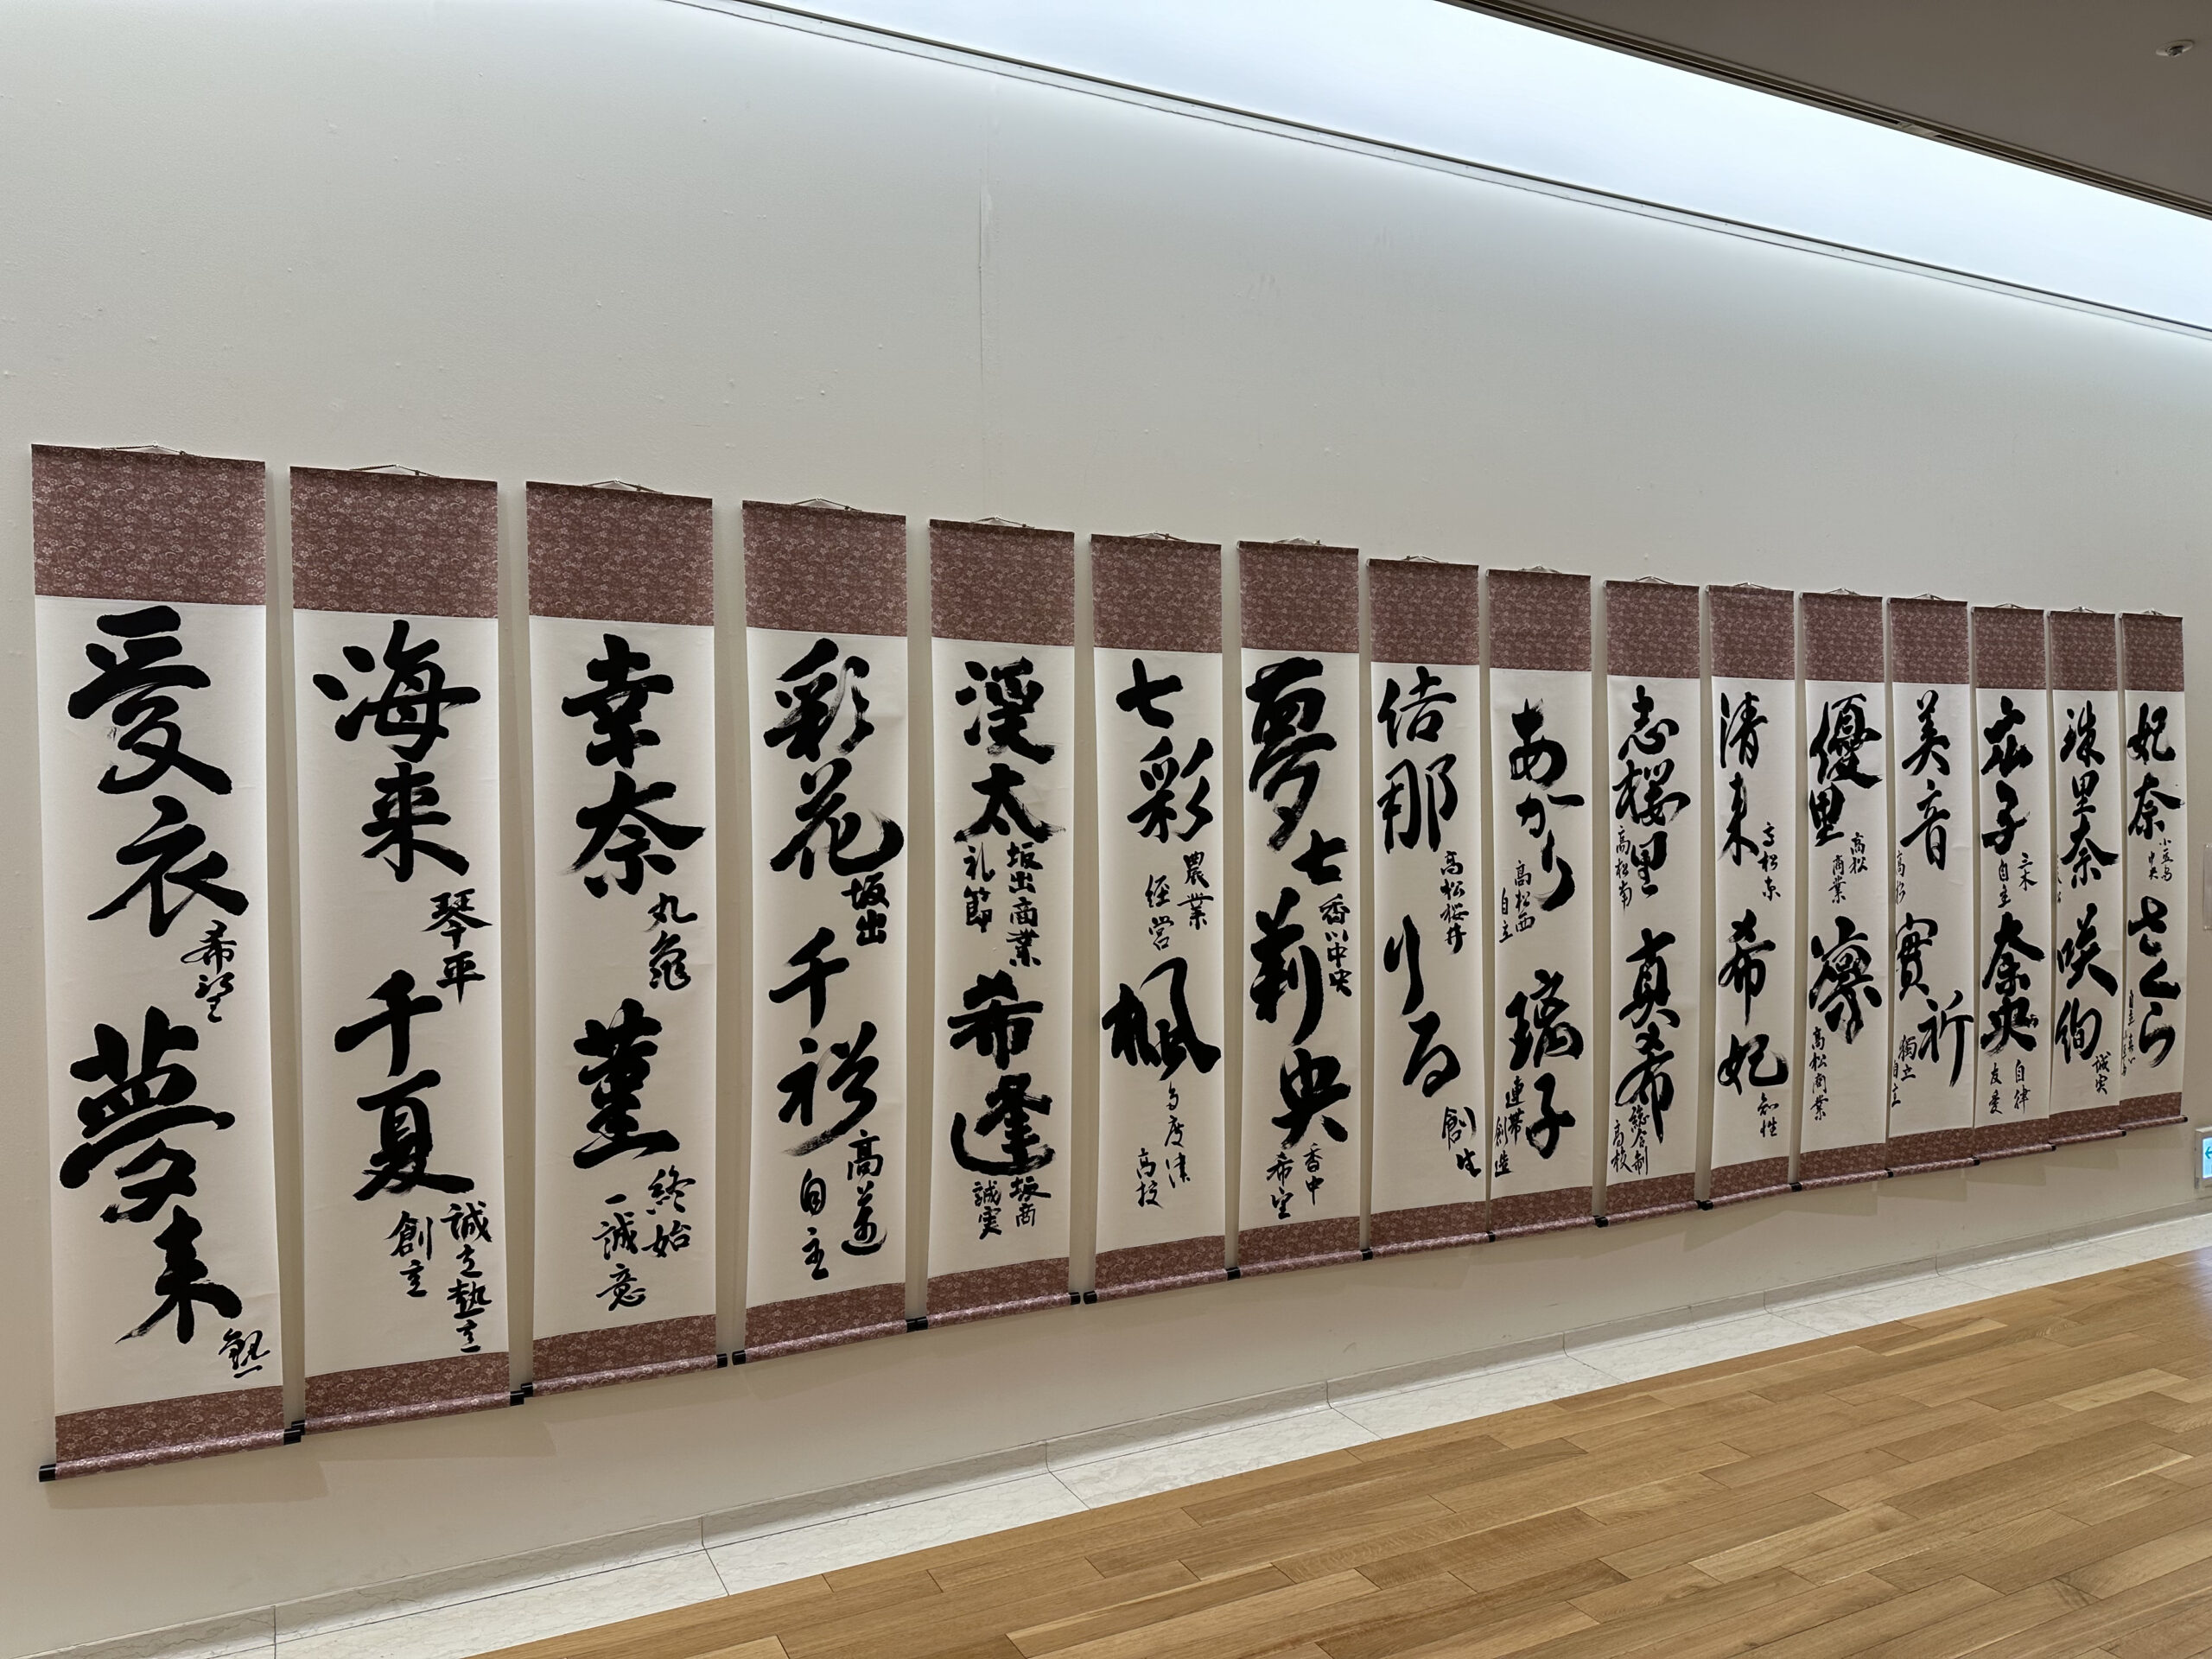 妃奈
小豆島
中央
さくら
珠里奈
咲絢
誠実
三木
自主
奈央
自律
友愛
美音
高松
實祈
獨立
自主
優里
高松
商業
凛
高松商業
清来
高松東
希妃
知性
志桜里
高松南
真希
総合制
高校
あかり
高松西
自主
璃子
連帯
創造
佶那
高松桜井
りる
創生
夢七
香川中央
莉央
香中
希望
七彩
農業
経営
楓
多度津
高校
渓太
坂出商業
礼節
希逢
坂商
誠実
彩花
坂出
千裕
自主
幸奈
丸亀
菫
終始
一誠意
海来
琴平
千夏
誠之塾主
創主
愛衣
希望
夢来